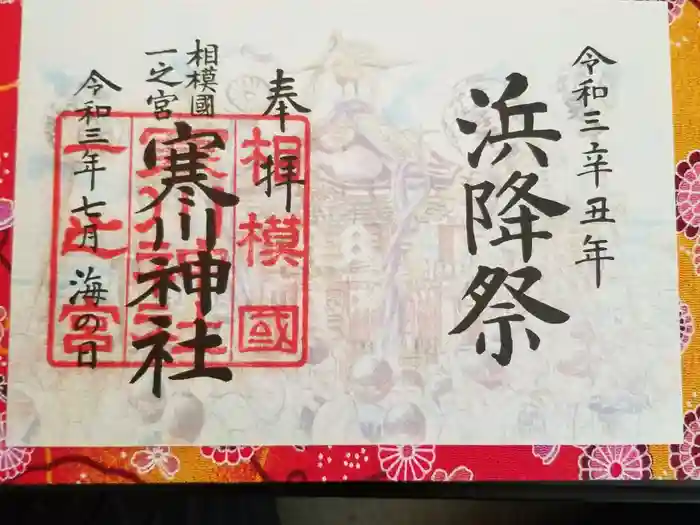 令和三辛丑年
浜降祭
奉拝
相模國
一之宮
寒川神社
令和三年七月 海の日
相模國
寒川神社
一之宮